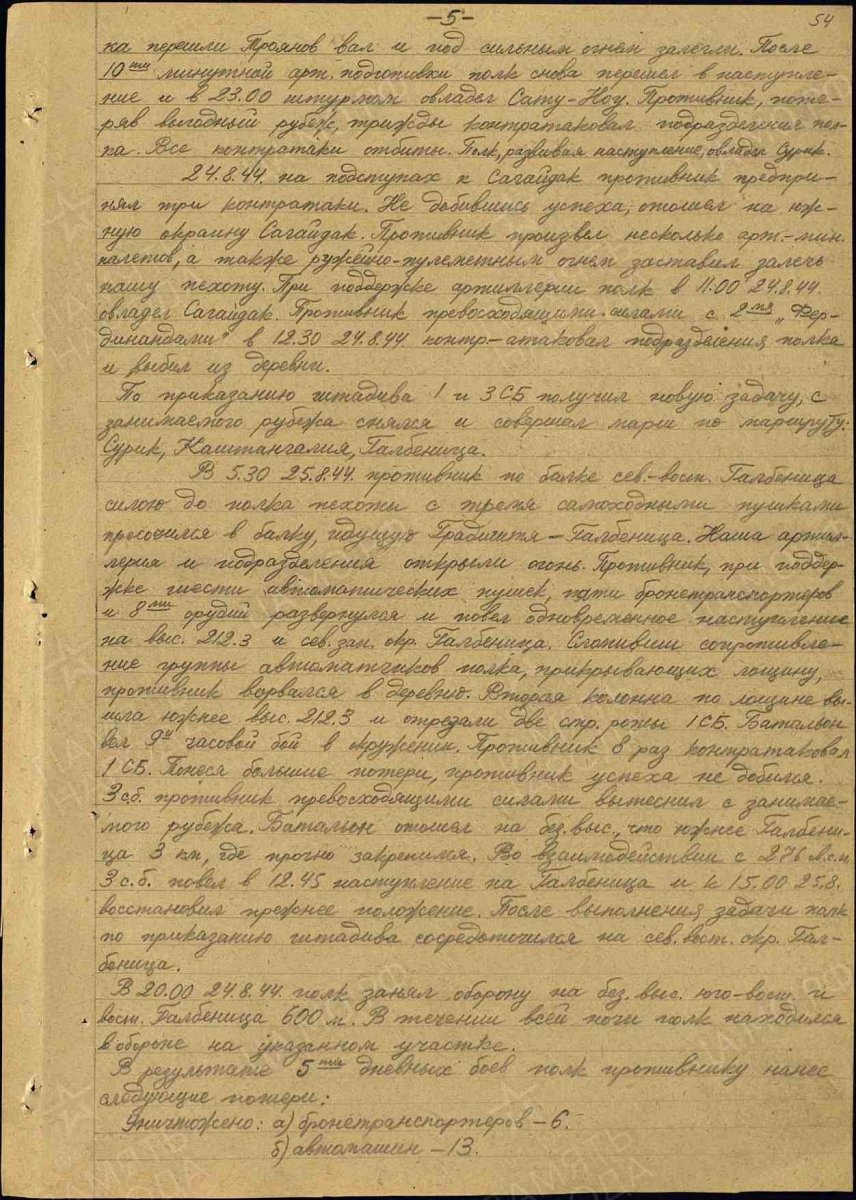 -5-
54
ка перешли Троянов вал и под сильным огнем залегли. После
10ти минутной арт. подготовки полк снова перешел в наступле-
ние и в 23.00 штурмом овладел Сату-Ноу. Противник, поте-
ряв выгодный рубеж, трижды контратаковал подразделения пол-
ка. Все контратаки отбиты. Полк, развивая наступление, овладел Сурик.
24.8.44. на подступах к Сагайдак противник предпри-
нял три контратаки. Не добившись успеха, отошел на юж-
ную окраину Сагайдак. Противник произвел несколько арт.-мин.
налетов, а также ружейно-пулеметным огнем заставил залечь
нашу пехоту. При поддержке артиллерии полк в 11.00 24.8.44.
овладел Сагайдак. Противник превосходящими силами с 2мя „Фер-
динандами" в 12.30 24.8.44. контр-атаковал подразделения полка
и выбил из деревни.
По приказанию штадива 1 и 3 СБ получил новую задачу, с
занимаемого рубежа снялся и совершал марш по маршруту:
Сурик, Каштангалия, Галбеница.
В 5.30 25.8.44. противник по балке сев.-вост. Галбеница
силою до полка пехоты с тремя самоходными пушками
просочился в балку, идущую Градичитя - Галбеница. Наша артил-
лерия и подразделения открыли огонь. Противник, при поддер-
жке шести автоматических пушек, пяти бронетранспортеров
и 8ми орудий развернулся и повел одновременное наступление
на выс. 212.3 и сев. зап. окр. Галбеница. Сломивши сопротивле-
ние группы автоматчиков полка, прикрывающих лощину,
противник ворвался в деревню. Вторая колонна по лощине вы-
шла южнее выс. 212.3 и отрезали две стр. роты 1 СБ. Батальон
вел 9и часовой бой в окружении. Противник 8 раз контратаковал
1 СБ. Понеся большие потери, противник успеха не добился.
3 с.б. противник превосходящими силами вытеснил с занимае-
мого рубежа. Батальон отошел на без. выс., что южнее Галбени-
ца 3 км, где прочно закрепился. Во взаимодействии с 276 л.с.п.
3 с.б. повел в 12.45 наступление на Галбеница и к 15.00 25.8.
восстановил прежнее положение. После выполнения задачи полк
по приказанию штадива сосредоточился на сев. вост. окр. Гал-
беница.
В 20.00 24.8.44. полк занял оборону на без. выс. юго-вост. и
вост. Галбеница 600 м. В течении всей ночи полк находился
в обороне на указанном участке.
В результате 5ти дневных боев полк противнику нанес
следующие потери:
Уничтожено: а) бронетранспортеров - 6.
б) автомашин - 13.